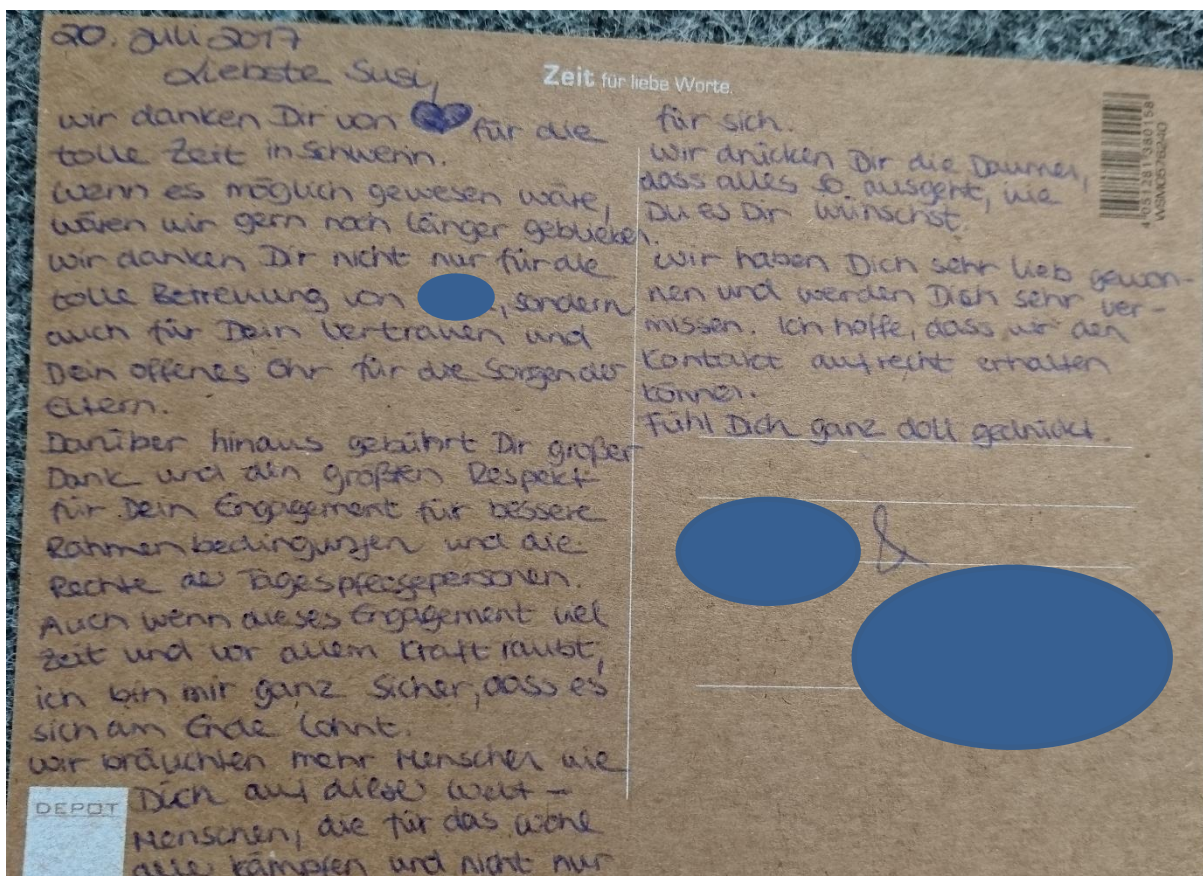 20. Juli 2017
Liebste Susi,
wir danken Dir von für die
tolle Zeit in Schwerin.
Wenn es möglich gewesen wäre,
wären wir gern noch länger geblieben.
Wir danken Dir nicht nur für die
tolle Betreuung von , sondern
auch für Dein Vertrauen und
Dein offenes Ohr für die Sorgen der
Eltern.
Darüber hinaus gebührt Dir großer
Dank und den größten Respekt
für Dein Engagement für bessere
Rahmenbedingungen und die
Rechte der Tagespflegepersonen.
Auch wenn dieses Engagement viel
Zeit und vor allem Kraft raubt,
ich bin mir ganz sicher, dass es
sich am Ende lohnt.
Wir bräuchten mehr Menschen wie
Dich auf dieser Welt –
Menschen, die für das Wohl
aller kämpfen und nicht nur
DEPOT
Zeit für liebe Worte.
für sich.
Wir drücken Dir die Daumen,
dass alles so ausgeht, wie
Du es Dir wünschst.
Wir haben Dich sehr lieb gewon-
nen und werden Dich sehr ver-
missen. Ich hoffe, dass wir den
Kontakt aufrecht erhalten
können.
Fühl Dich ganz doll gedrückt.
&
WSM0576240